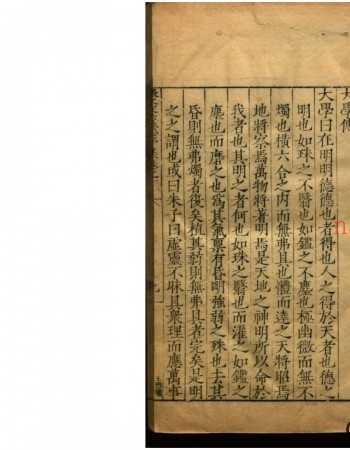 大學傳
大學曰在明明德德也者得也人之得於天者也德之
明也如珠之不翳也如鑑之不塵也極幽微而無不
燭也橫六合之內而無弗具也體而達之天將昭焉
地將宗焉萬物將著明焉是天地之神明所以命於
我者也其明之者何也如珠之翳也而濯之如鑑之
塵也而磨之也爲其氣稟有昏明強弱之殊也去其
昏則無弗燭者復矣植其弱則無弗具者完矣是明
之之謂也或曰朱子曰虛靈不昧具衆理而應萬事